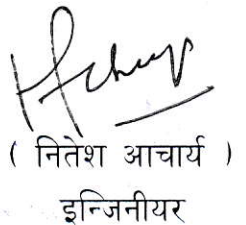 ( नितेश आचार्य )
इन्जिनीयर